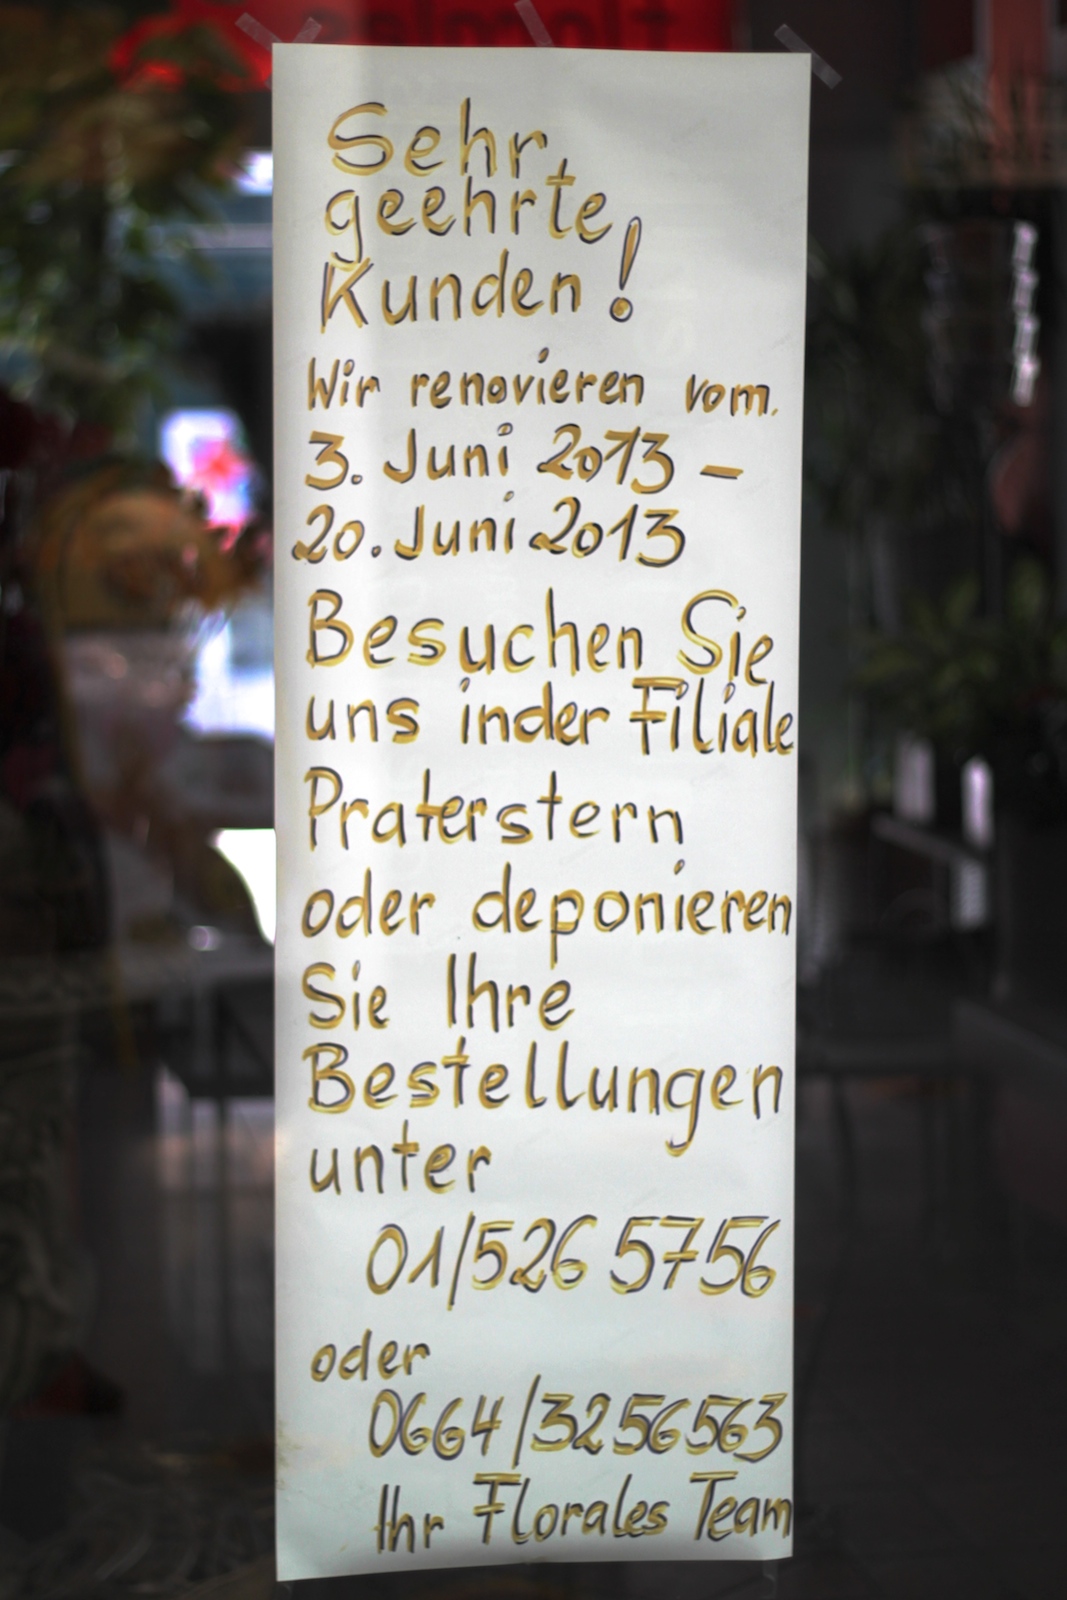 Sehr
geehrte
Kunden!
Wir renovieren vom
3. Juni 2013 –
20. Juni 2013
Besuchen Sie
uns in der Filiale
Praterstern
oder deponieren
Sie Ihre
Bestellungen
unter
01/526 5756
oder
0664/3256563
Ihr Florales Team